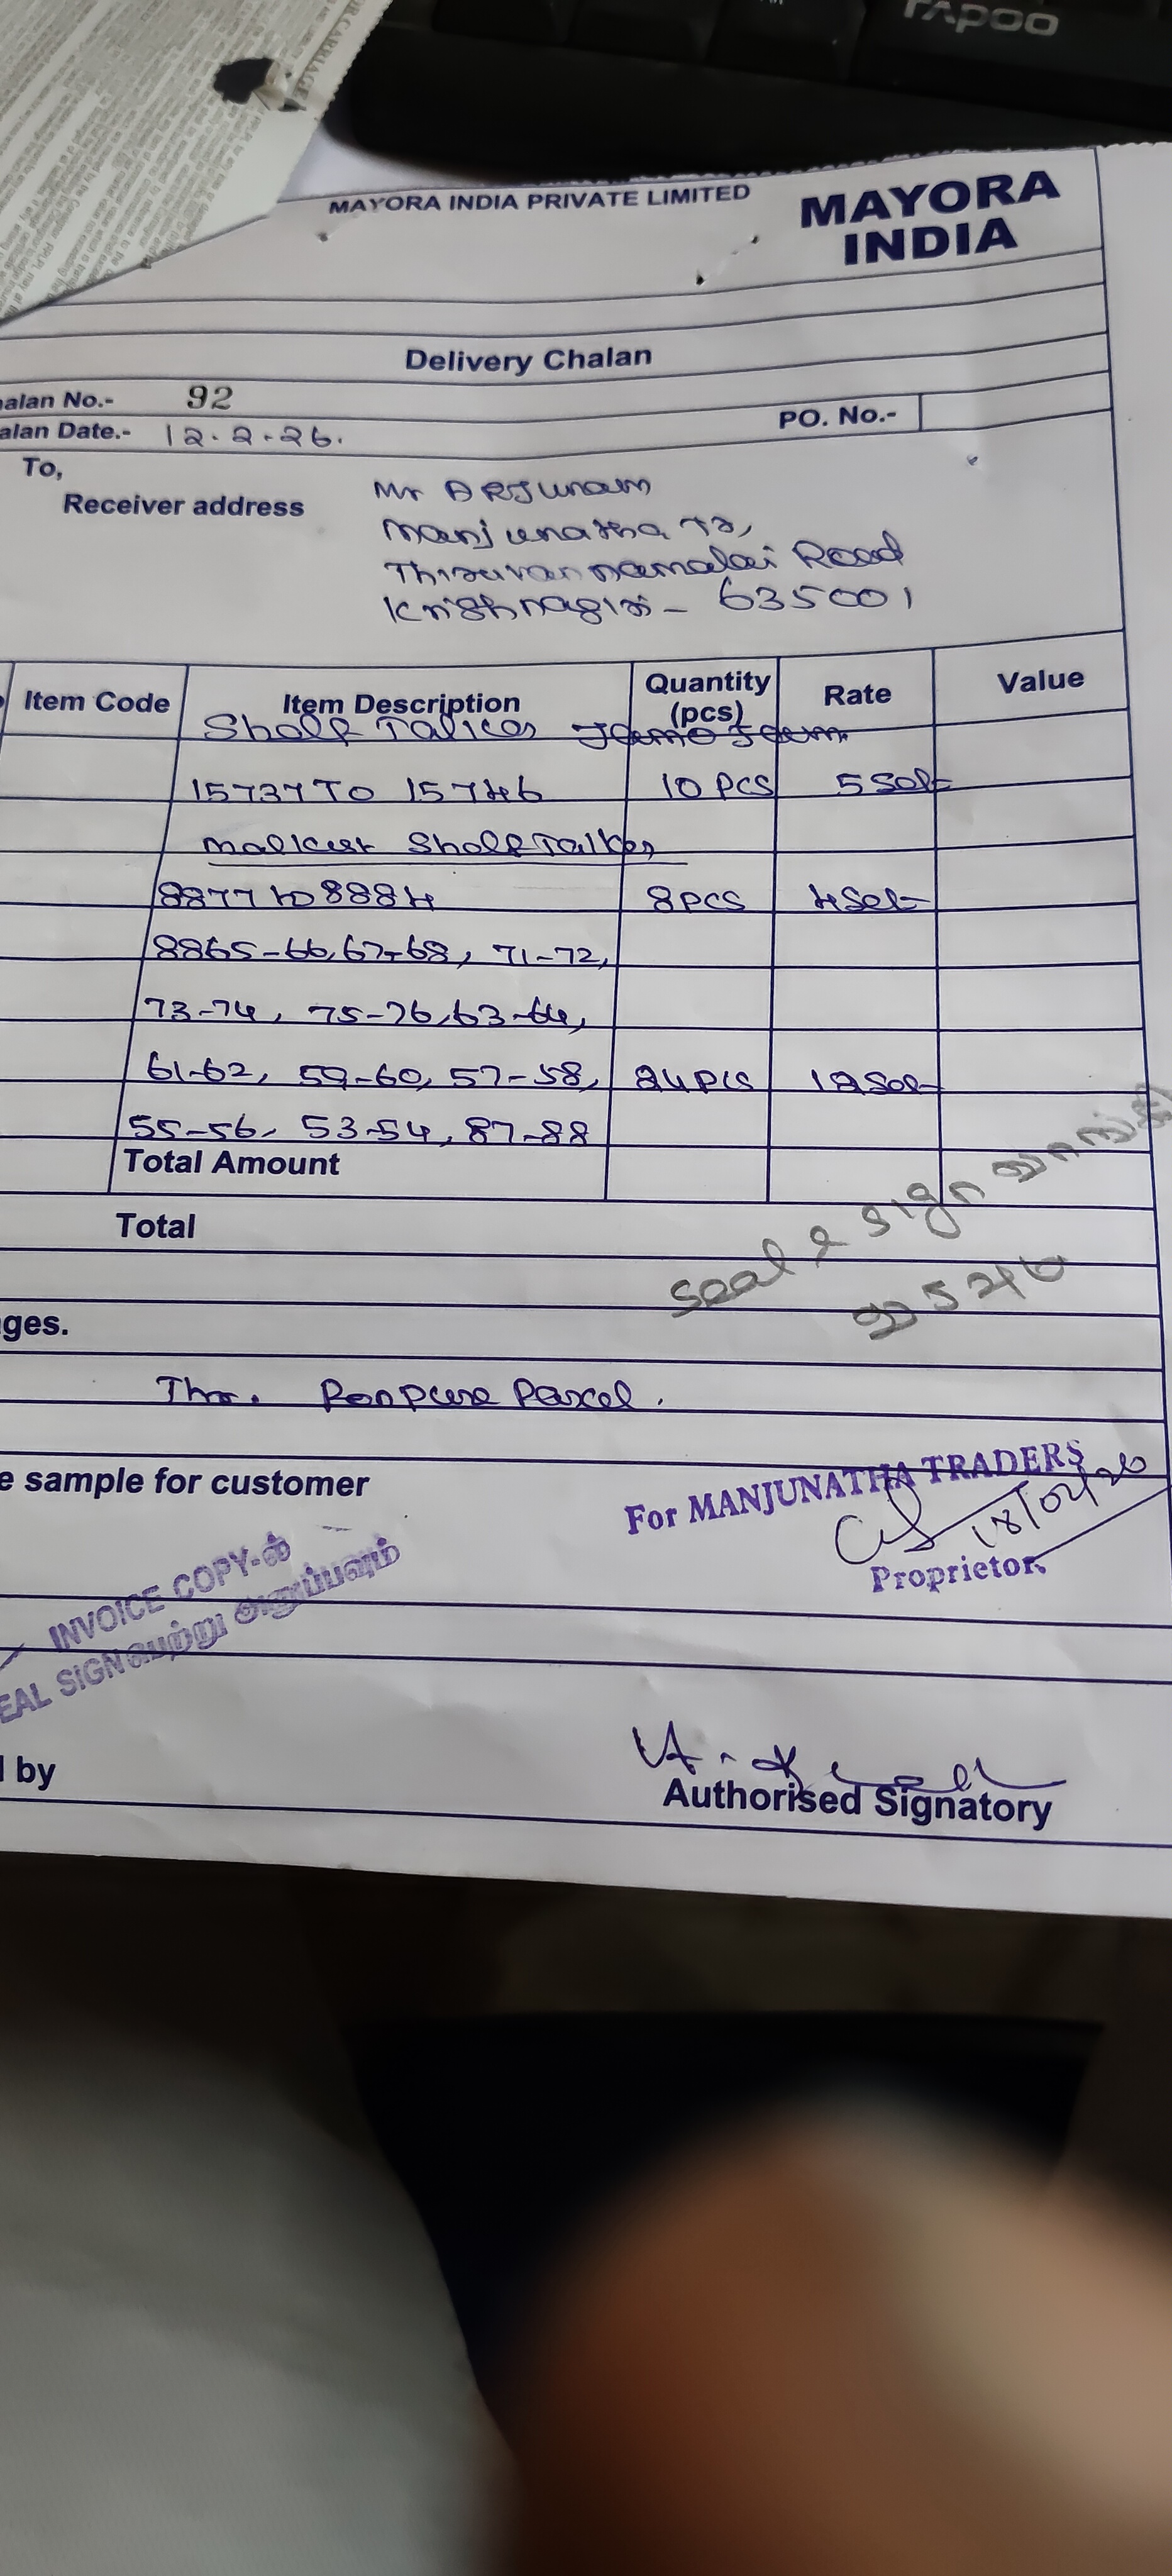 UR CARRIAGE
RAPOO
MAYORA INDIA PRIVATE LIMITED
MAYORA
INDIA
Delivery Chalan
alan No.- 92
alan Date.- 12.2.26.
PO. No.-
To,
Receiver address
Mr ARJunam
Manjunatha Ts,
Thiruvannamalai Road
Krishnagiri - 635001
Item Code Item Description Quantity (pcs) Rate Value
Shelf Talker
15737 TO 15746 10 PCS 5 Set
Malkist Shelf Talker
8877 to 8884 8 PCS 4 Set
8865-66, 67-68, 71-72,
73-74, 75-76, 63-64,
61-62, 59-60, 57-58, 24 PCS 12 Set
55-56, 53-54, 87-88
Total Amount
Total
seal & sign
ges.
Thr. Ponpure Parcel.
e sample for customer
For MANJUNATHA TRADERS
18/02/26
Proprietor.
INVOICE COPY-ல்
EAL SIGN பெற்று அனுப்பவும்
by
Authorised Signatory